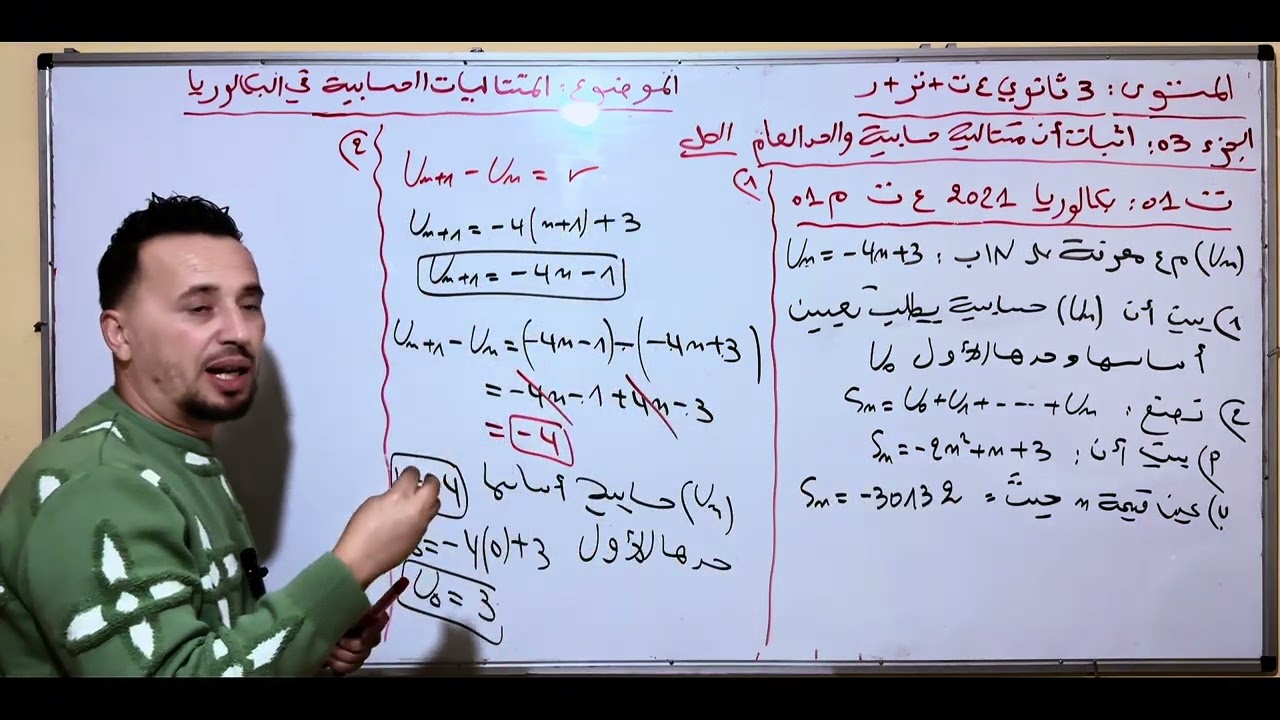 المستوى: 3 ثانوي ع ت + تر + ر
الموضوع: المتتاليات الحسابية في البكالوريا
الجزء 03: اثبات أن متتالية حسابية والحد العام
الحل
ت 01: بكالوريا 2021 ع ت م 01
(Un) م ع معرفة بـ : Un = -4n+3
1) بيت أن (Un) حسابية يطلب تعيين
أساسها وحدها الأول U0
2) نضع : Sn = U0 + U1 + --- + Un
أ) بين أن : Sn = -2n²+n+3
ب) عين قيمة n حيث : Sn = -30132
1)
Un+1 - Un = r
Un+1 = -4(n+1)+3
Un+1 = -4n-1
Un+1 - Un = (-4n-1)-(-4n+3)
= -4n-1+4n-3
= -4
(Un) حسابية أساسها 4
حدها الأول = -4(0)+3
U0 = 3
2)